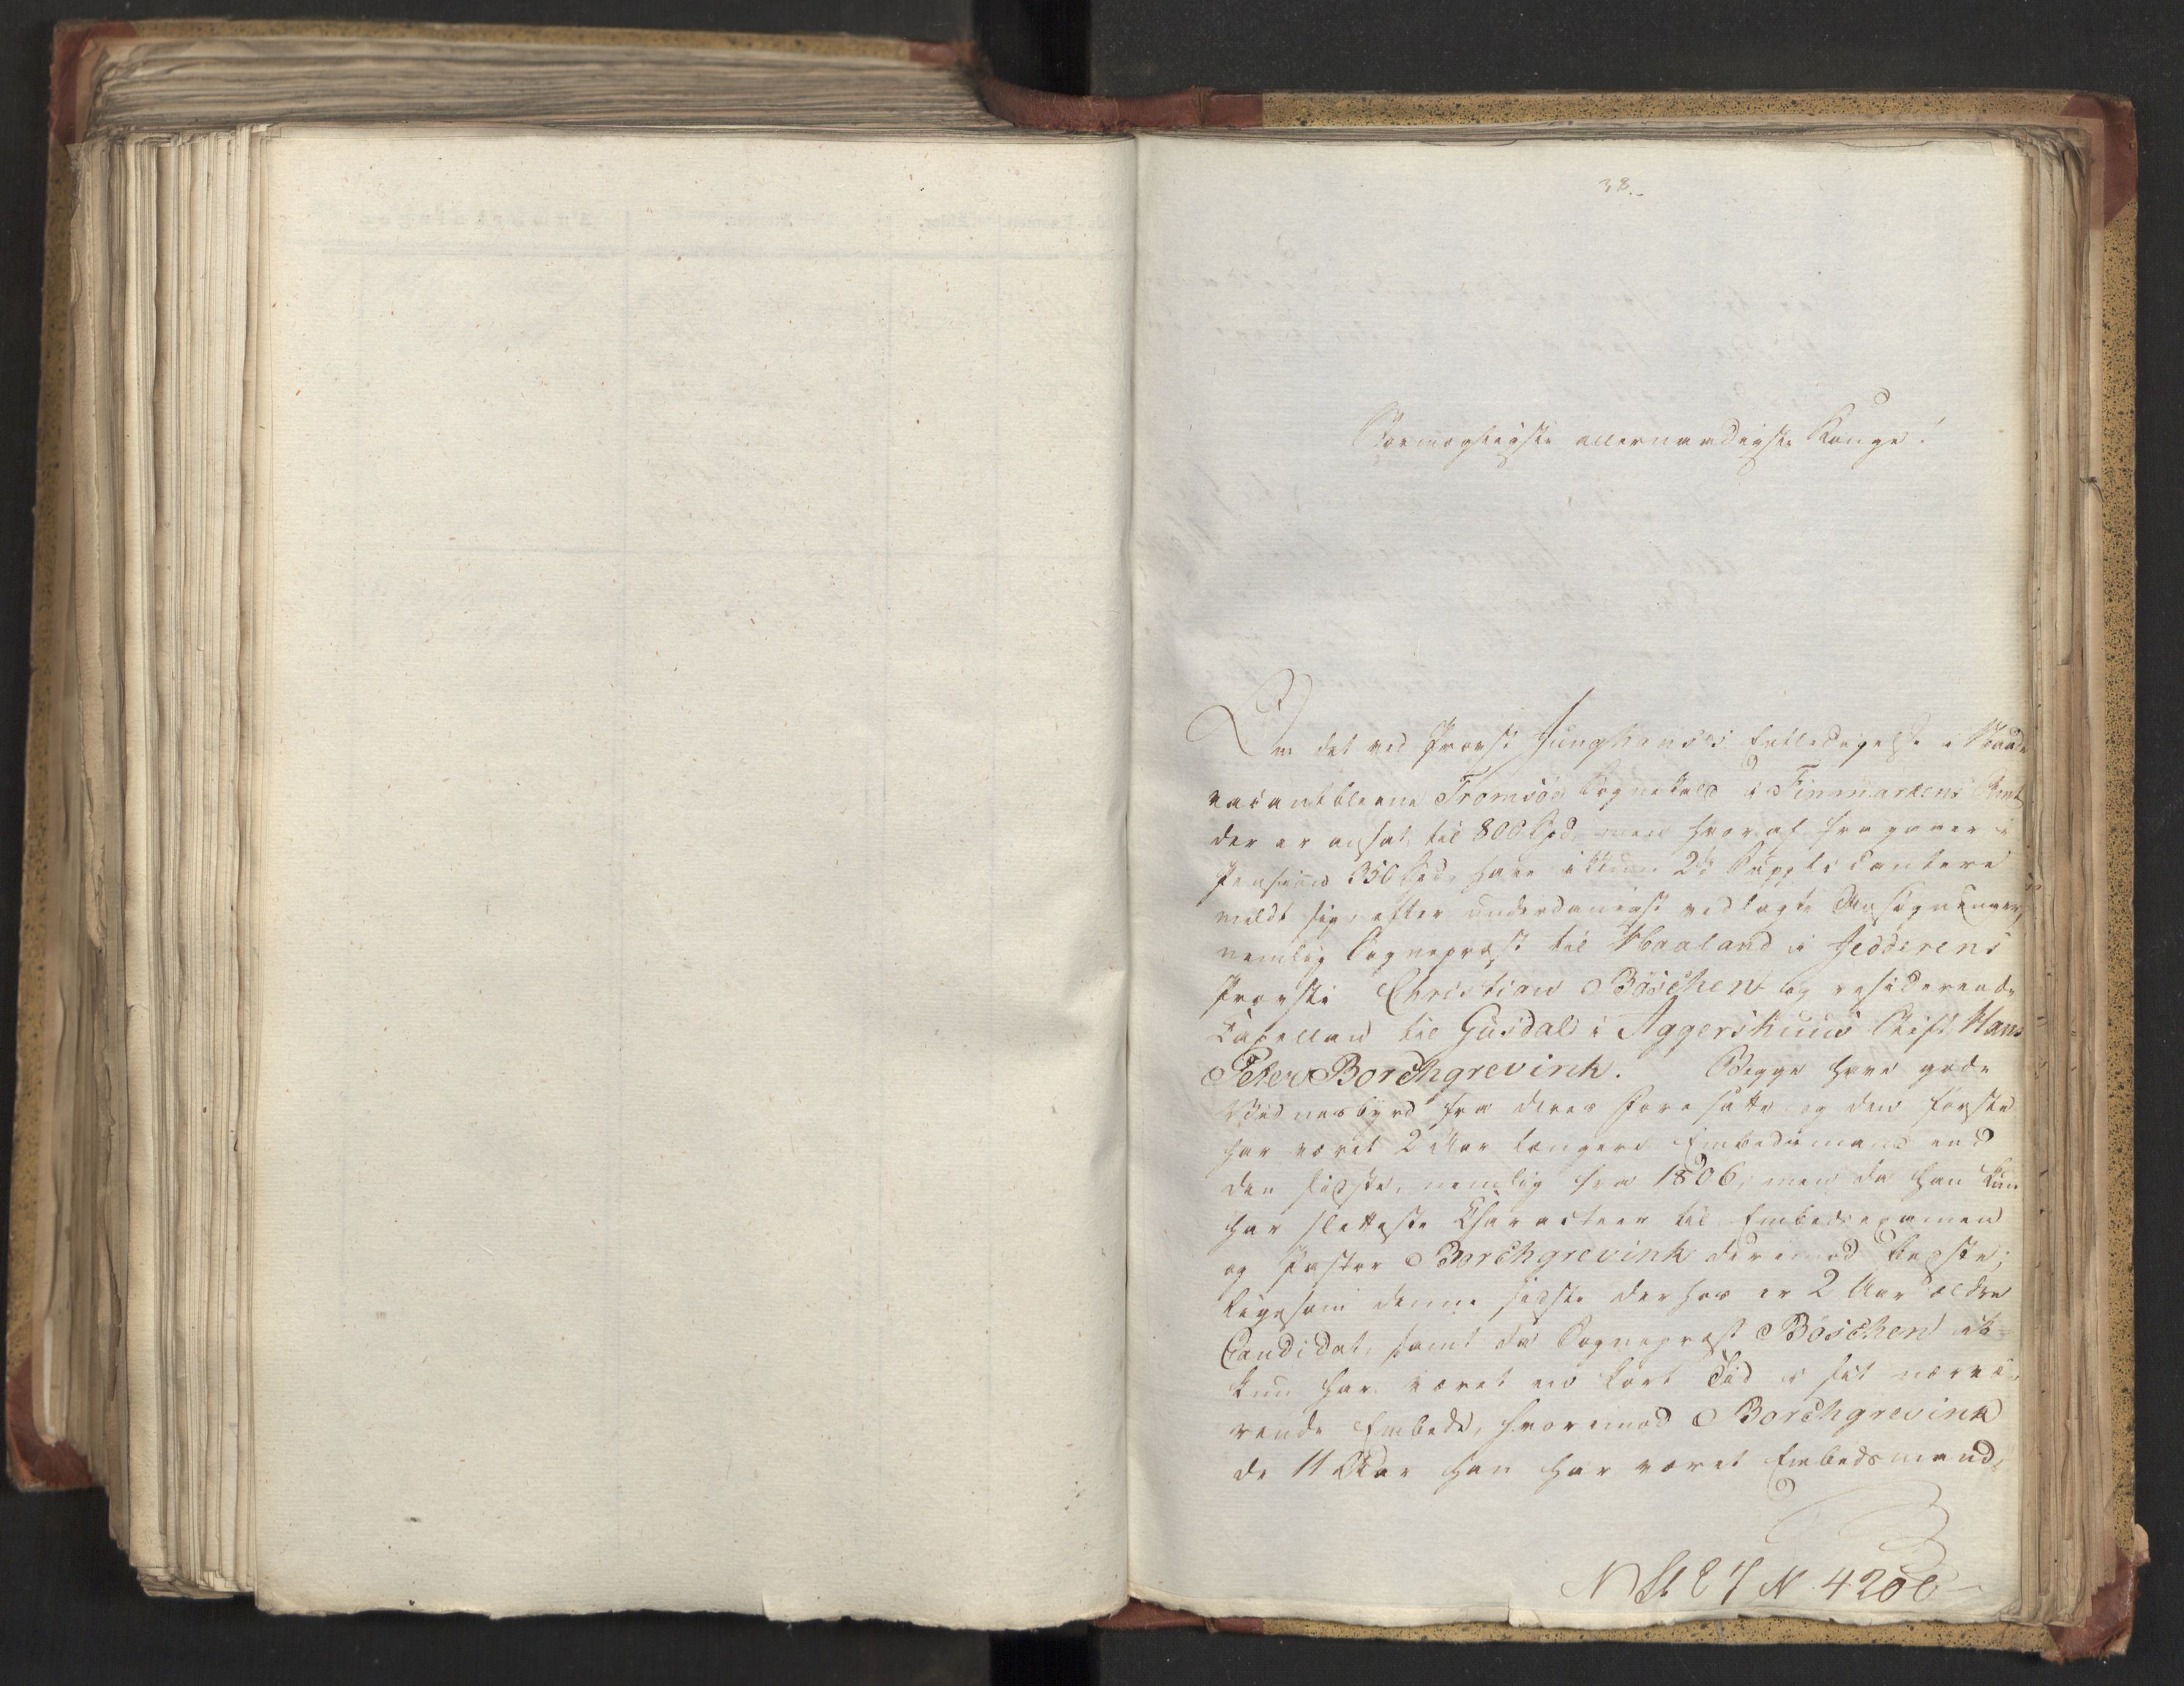 38.
Stormægtigste allernaadigste Konge!
Om det ved Provst Junghans's Entledigelse i Naade
vacantblevne Tromsöe Sognekald i Finmarkens Amt
der er ansat til 800 Spd. men hvoraf fragaaer i
Pension 350 Spd. have ikkun 2de Supplicantere
meldt sig, efter underdanigst vedlagte Ansögninger,
nemlig Sognepræst til Haaland i Jedderens
Provsti Christian Böschen og residerende
Capellan til Gusdal i Aggershuus Stift Hans
Peter Borchgrevink. Begge have gode
Vidnesbyrd fra deres Foresatte og den förste
har været 2 Aar længere Embedsmand end
den sidste, nemlig fra 1806, men da han kun
har sletteste Characteer til Embedsexamen
og Pastor Borchgrevink derimod bedste;
ligesom denne sidste derhos er 2 Aar ældre
Candidat, samt da Sognepræst Böschen ik-
kun har været en kort Tid i sit nærvæ-
rende Embede, hvorimod Borchgrevink
de 11 Aar han har været Embedsmand,